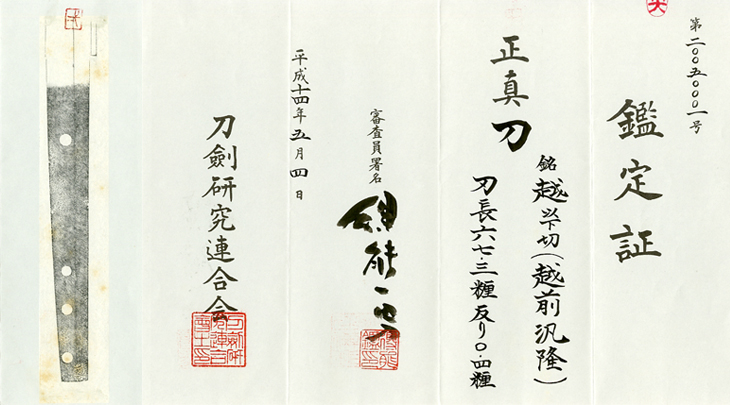 第二〇〇五〇〇〇一号
鑑定証
正真 刀
銘 越 以下切(越前汎隆)
刃長六七・三糎 反り〇・四糎
審査員署名
平成十四年五月四日
刀劍研究連合会